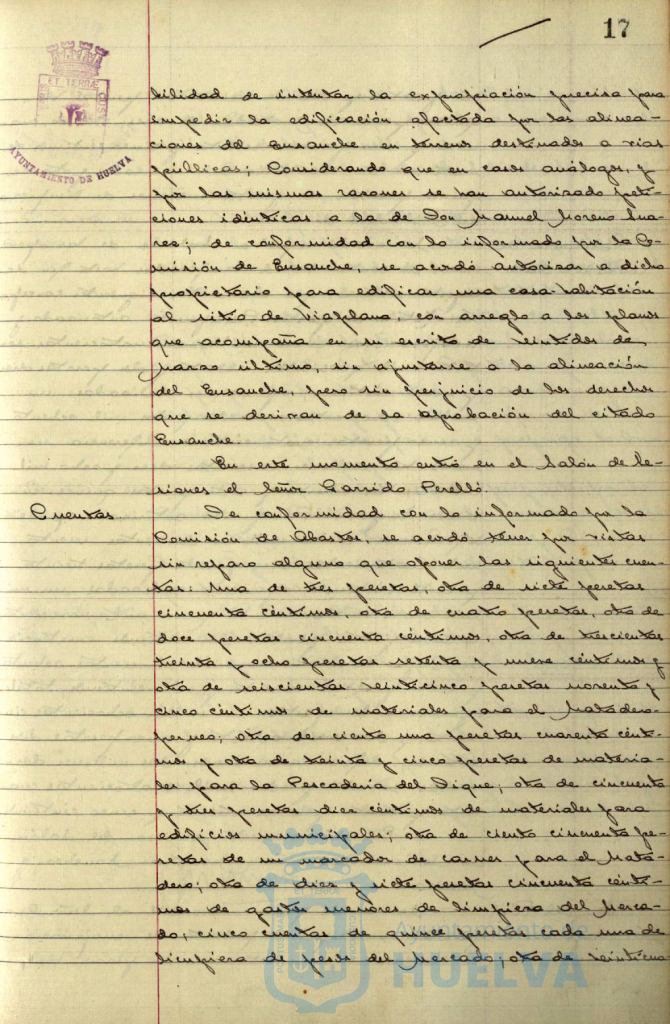 17
PORTUS MARIS ET TERRAE CUSTODIA
AYUNTAMIENTO DE HUELVA
bilidad de intentar la expropiación precisa para
impedir la edificación afectada por las alinea-
ciones del Ensanche en terrenos destinados a vias
públicas; Considerando que en casos análogos, y
por las mismas razones se han autorizado peti-
ciones idénticas a la de Don Manuel Moreno Sua-
rez; de conformidad con lo informado por la Co-
misión de Ensanche, se acordó autorizar a dicho
propietario para edificar una casa-habitación
al sitio de Viaplana, con arreglo a los planos
que acompaña en su escrito de veintidos de
Marzo último, sin ajustarse a la alineación
del Ensanche, pero sin perjuicio de los derechos
que se derivan de la aprobación del citado
Ensanche.
En este momento entró en el Salón de Se-
siones el Señor Garrido Perelló.
Cuentas.
De conformidad con lo informado por la
Comisión de Abastos, se acordó tener por vistas
sin reparo alguno que oponer las siguientes cuen-
tas: Una de tres pesetas, otra de siete pesetas
cincuenta céntimos, otra de cuatro pesetas, otra de
doce pesetas cincuenta céntimos, otra de trescientas
treinta y ocho pesetas setenta y nueve céntimos y
otra de seiscientas veinticinco pesetas noventa y
cinco céntimos de materiales para el Matadero-
perneo; otra de ciento una pesetas cuarenta cénti-
mos y otra de treinta y cinco pesetas de materia-
les para la Pescadería del Dique; otra de cincuenta
y tres pesetas diez céntimos de materiales para
edificios municipales; otra de ciento cincuenta pe-
setas de un marcador de carnes para el Mata-
dero; otra de diez y siete pesetas cincuenta cénti-
mos de gastos menores de limpieza del Merca-
do; cinco cuentas de quince pesetas cada una de
limpieza de pesos del Mercado; otra de veinticua-
HUELVA